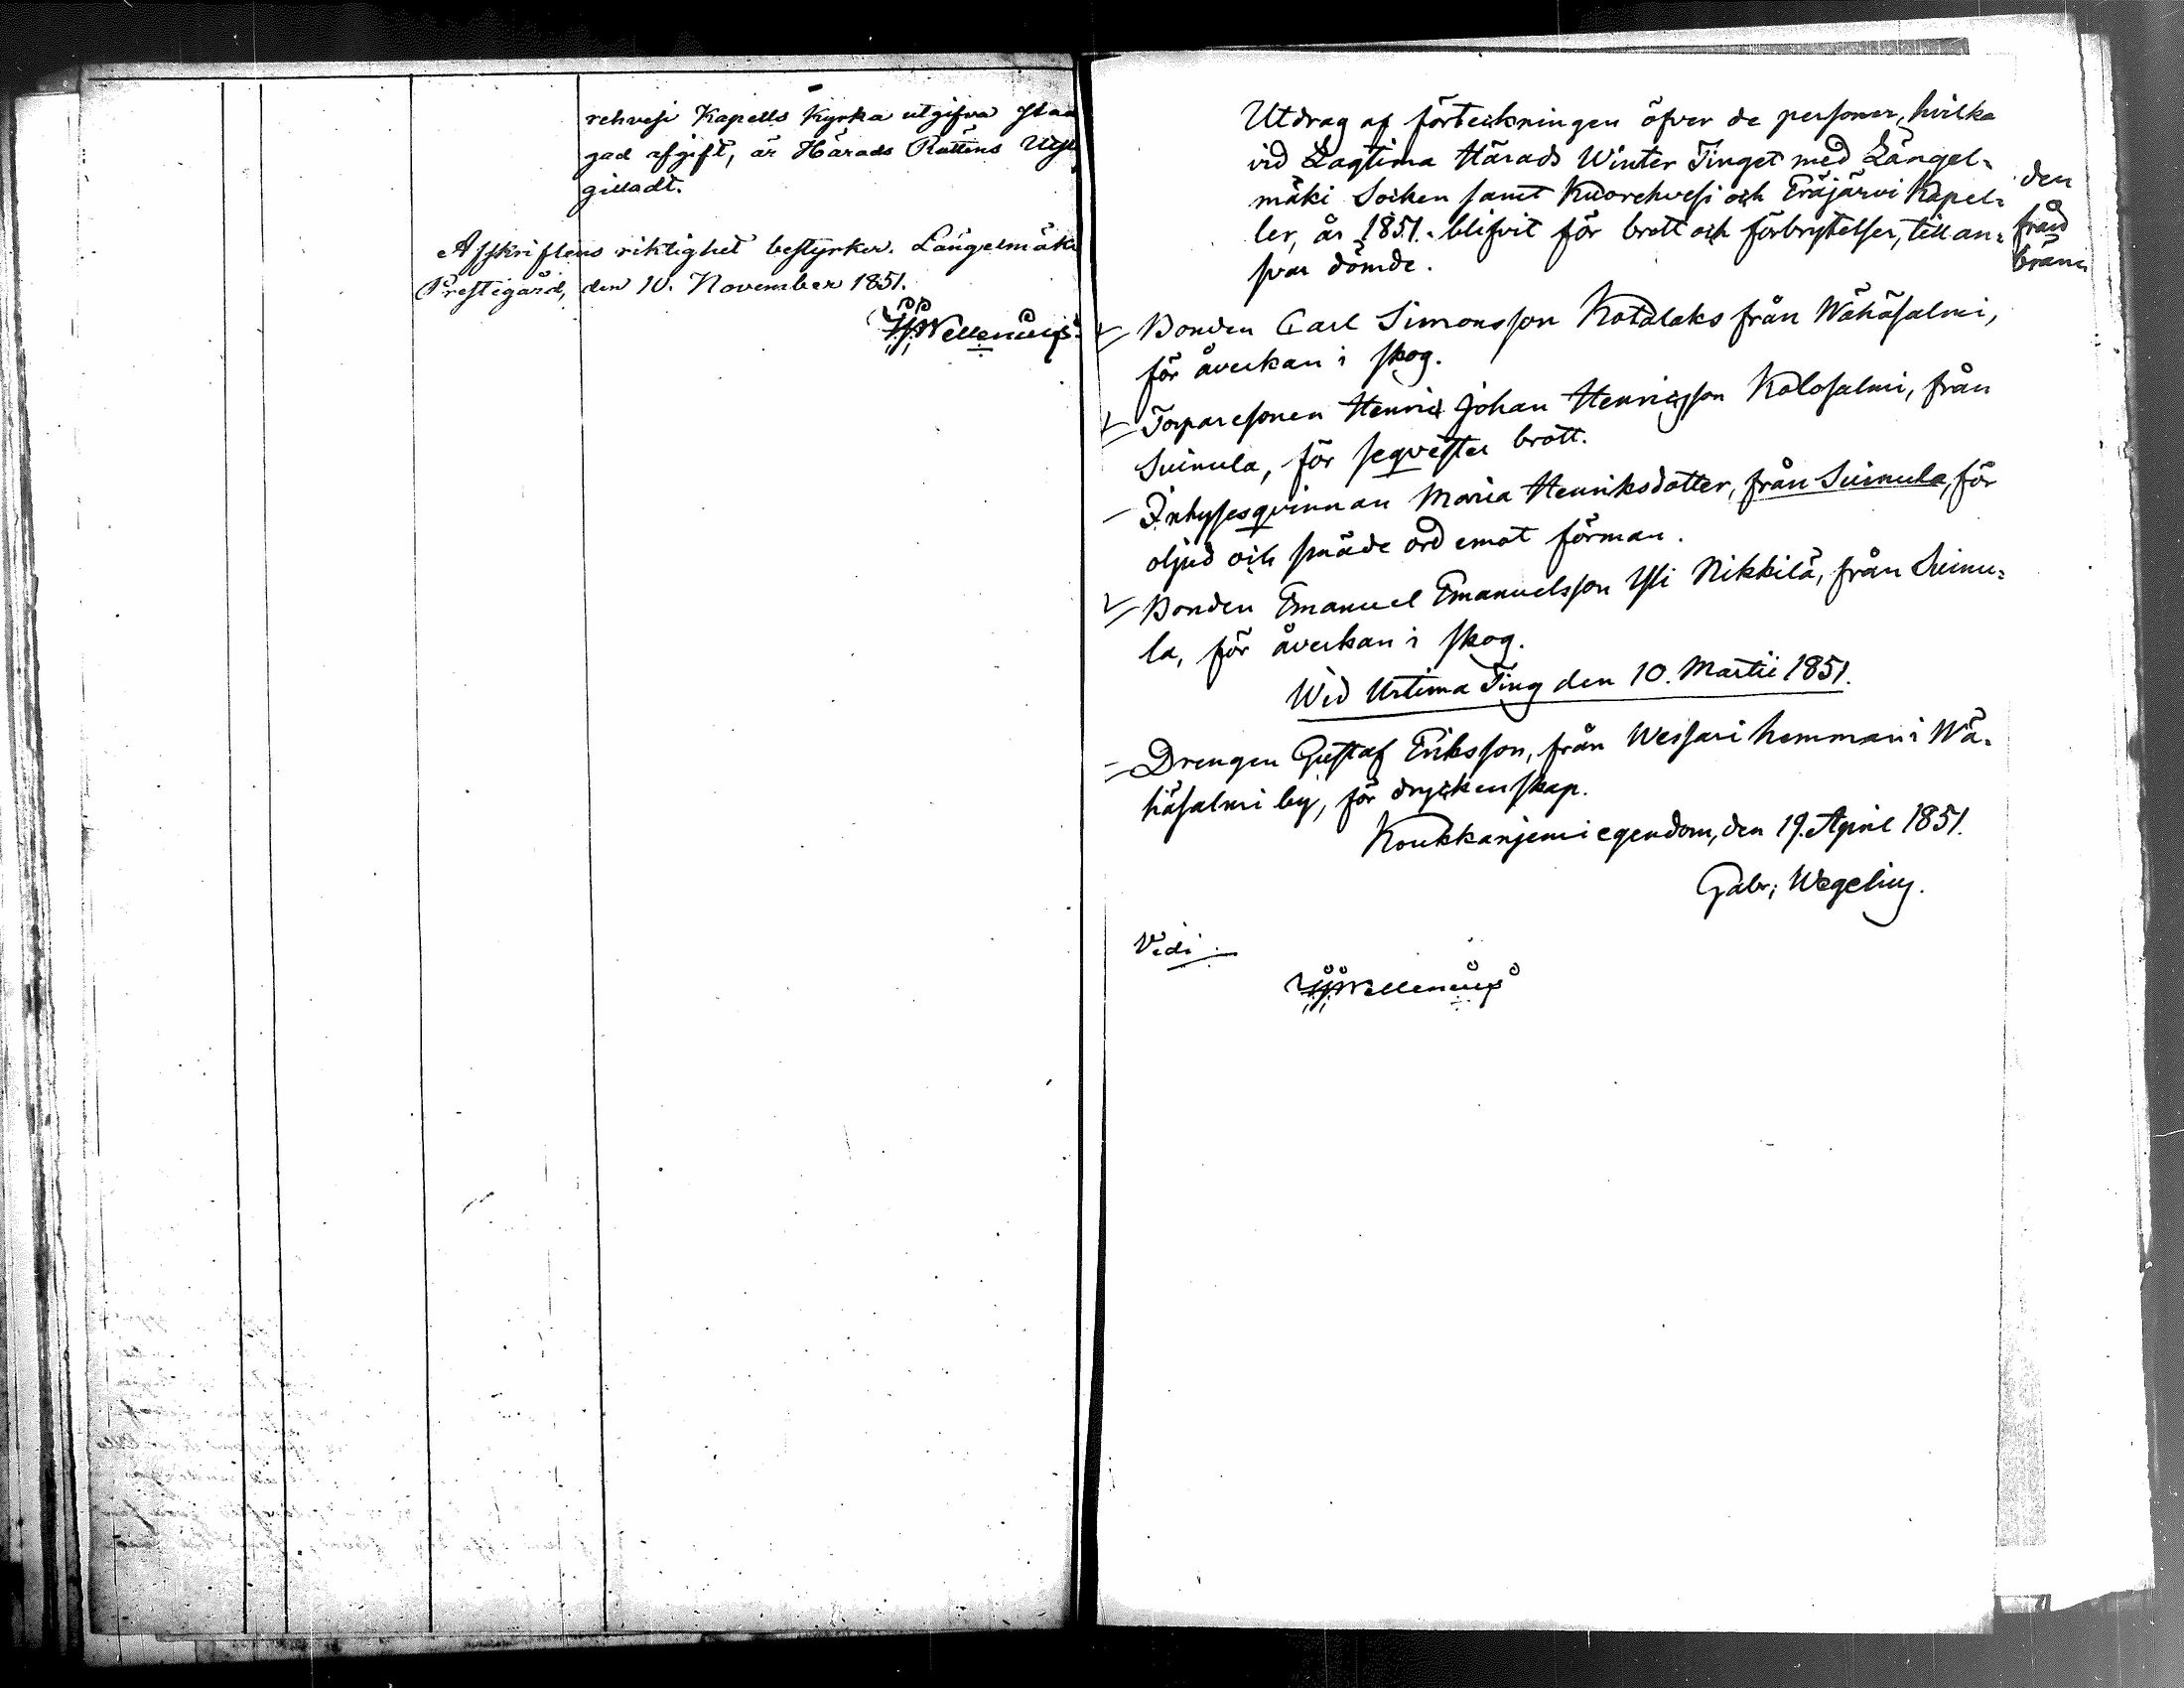 rehvesi Kapells Kyrka utgifva stad
gad afgift, är Härads Rättens Utsl
gilladt.
Afskriftens riktighet bestyrker. Längelmäki
Prestegård, den 10. November 1851.
Wellenius
Utdrag af förteckningen öfver de personer, hvilka
vid Lagtima Härads Winter Tinget med Längel-
mäki Socken samt Kuorehvesi och Eräjärvi Kapel-
ler, år 1851. blifvit för brott och förbrytelser, till an-
svar dömde.
Bonden Carl Simonsson Kotalaks från Wähäsalmi,
för åverkan i skog.
Torparesonen Henric Johan Henricsson Kolosalmi, från
Suinula, för seqvester brott.
Inhysesqvinnan Maria Henriksdotter, från Suinula, för
oljud och snäde ord emot förman.
Bonden Emanuel Emanuelsson Yli Nikkilä, från Suinu-
la, för åverkan i skog.
Wid Urtima Ting den 10. Martii 1851.
Drengen Gustaf Eriksson, från Wessari hemman i Wä-
häsalmi by, för dryckenskap.
Koukkarjemi egendom, den 19. April 1851.
Gabr; Wegelius.
Vidi
Wellenius
den
från
bränv